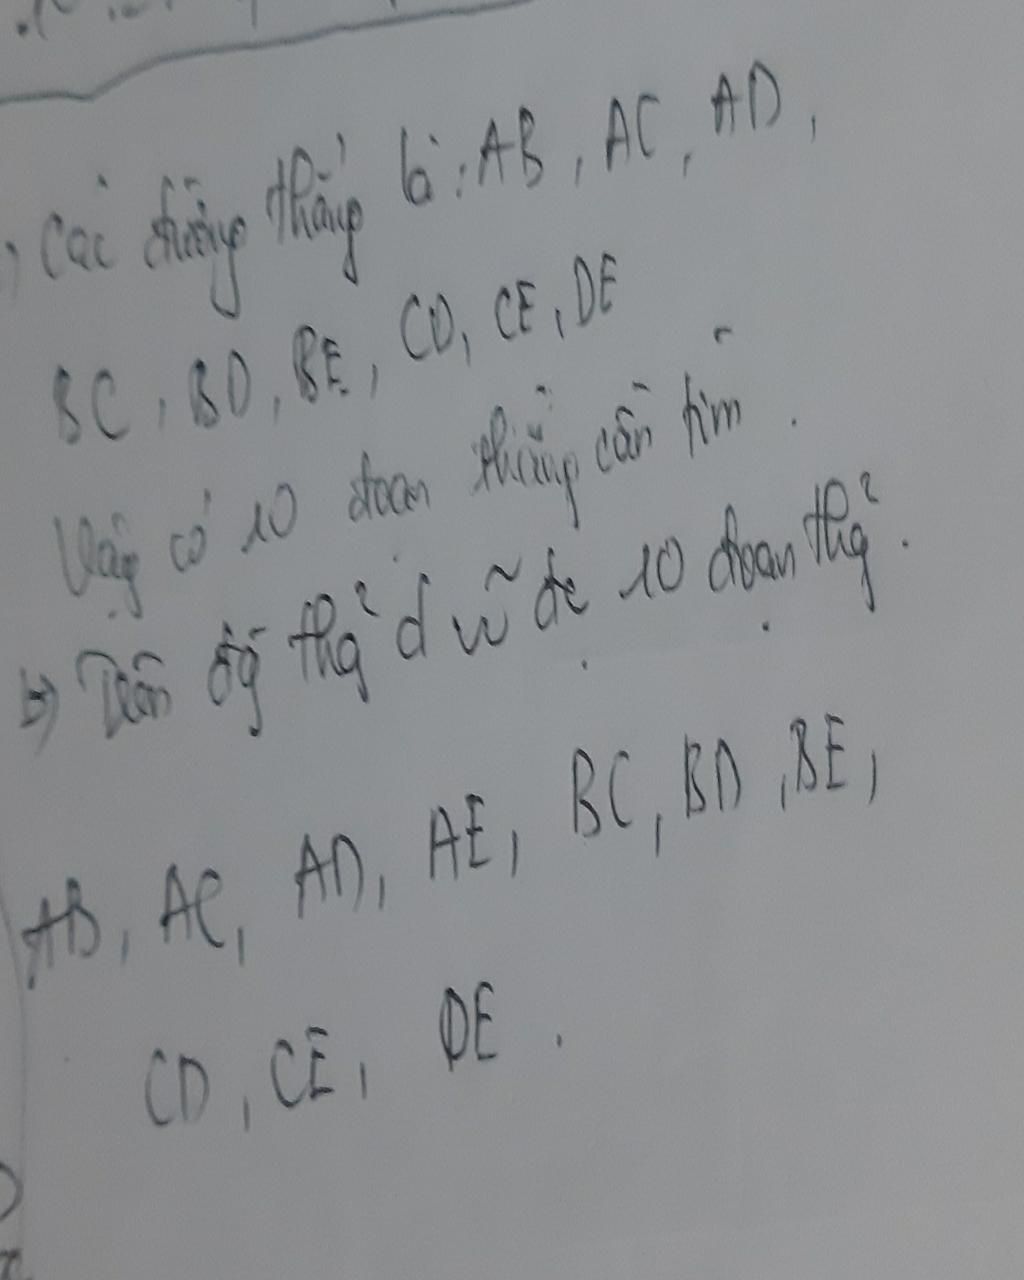 Các đường thẳng là : AB, AC, AD,
BC, BD, BE, CD, CE, DE
Vậy có 10 đoạn thẳng cần tìm.
b) Trên đg thg² d vẽ đc 10 đoạn thg².
AB, AC, AD, AE, BC, BD, BE,
CD, CE, DE.